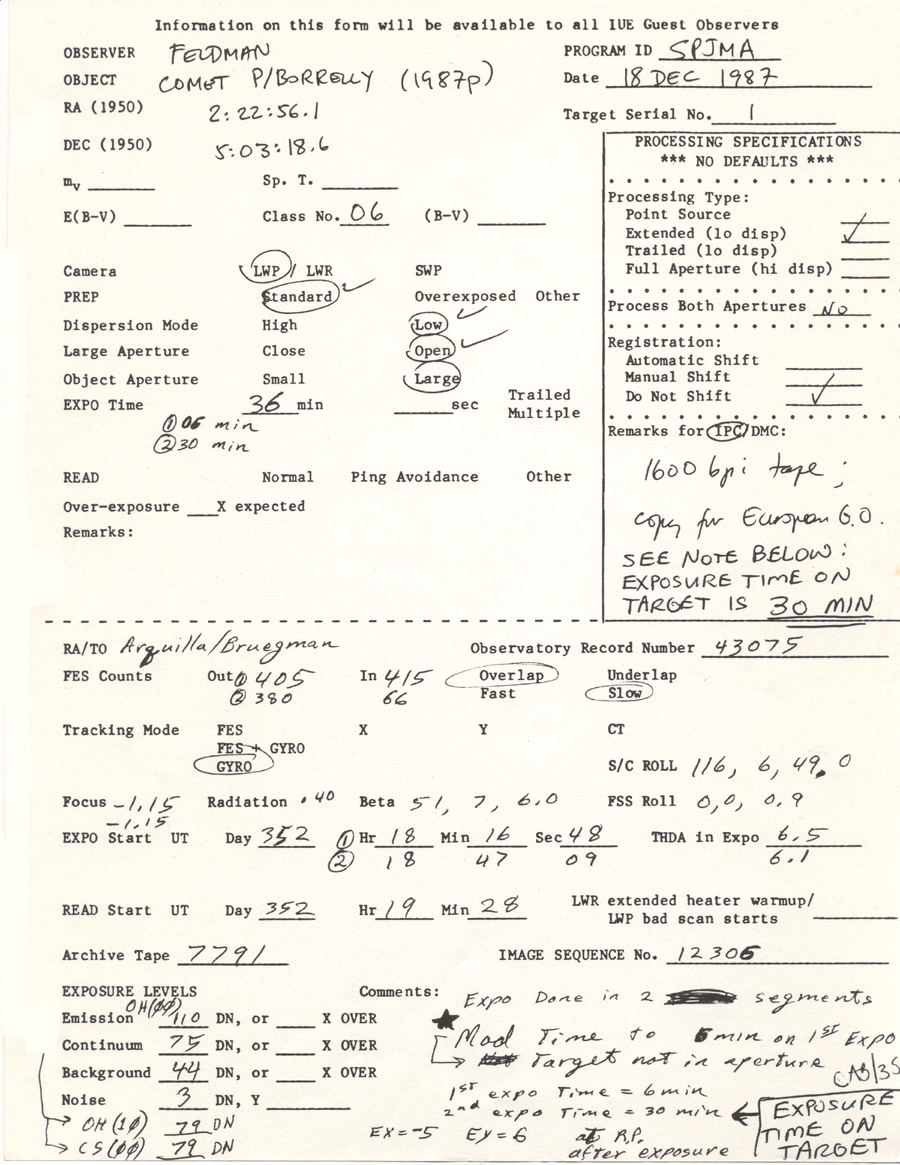 Information on this form will be available to all IUE Guest Observers
OBSERVER FELDMAN PROGRAM ID SPJMA
OBJECT COMET P/BORRELLY (1987p) Date 18 DEC 1987
RA (1950) 2:22:56.1 Target Serial No. 1
DEC (1950) 5:03:18.6
PROCESSING SPECIFICATIONS
*** NO DEFAULTS ***
mv Sp. T.
E(B-V) Class No. 06 (B-V)
Processing Type:
Point Source
Extended (lo disp) ✓
Trailed (lo disp)
Full Aperture (hi disp)
Camera LWP / LWR SWP
PREP Standard ✓ Overexposed Other
Process Both Apertures NO
Dispersion Mode High Low ✓
Large Aperture Close Open ✓
Object Aperture Small Large
Registration:
Automatic Shift
Manual Shift
Do Not Shift ✓
EXPO Time 36 min sec Trailed
Multiple
① 06 min
② 30 min
Remarks for IPC/DMC:
1600 bpi tape;
copy for European G.O.
SEE NOTE BELOW:
EXPOSURE TIME ON
TARGET IS 30 MIN
READ Normal Ping Avoidance Other
Over-exposure X expected
Remarks:
RA/TO Arquilla/Bruegman Observatory Record Number 43075
FES Counts Out ① 405 In 415 Overlap Underlap
② 380 66 Fast Slow
Tracking Mode FES X Y CT
FES + GYRO
GYRO S/C ROLL 116, 6, 49.0
Focus -1.15 Radiation .40 Beta 51, 7, 6.0 FSS Roll 0,0, 0.9
-1.15
EXPO Start UT Day 352 ① Hr 18 Min 16 Sec 48 THDA in Expo 6.5
② 18 47 09 6.1
READ Start UT Day 352 Hr 19 Min 28 LWR extended heater warmup/
LWP bad scan starts
Archive Tape 7791 IMAGE SEQUENCE No. 12306
EXPOSURE LEVELS Comments: Expo Done in 2 segments
OH(00)
Emission 110 DN, or X OVER
Continuum 75 DN, or X OVER
Background 44 DN, or X OVER
Noise 3 DN, Y
OH (10) 79 DN
CS (00) 79 DN
★ Mod Time to 6min on 1ST Expo
→ Target not in aperture
1ST expo Time = 6min
2nd expo Time = 30 min ←
EX=-5 EY=6 at R.P.
after exposure
EXPOSURE
TIME ON
TARGET